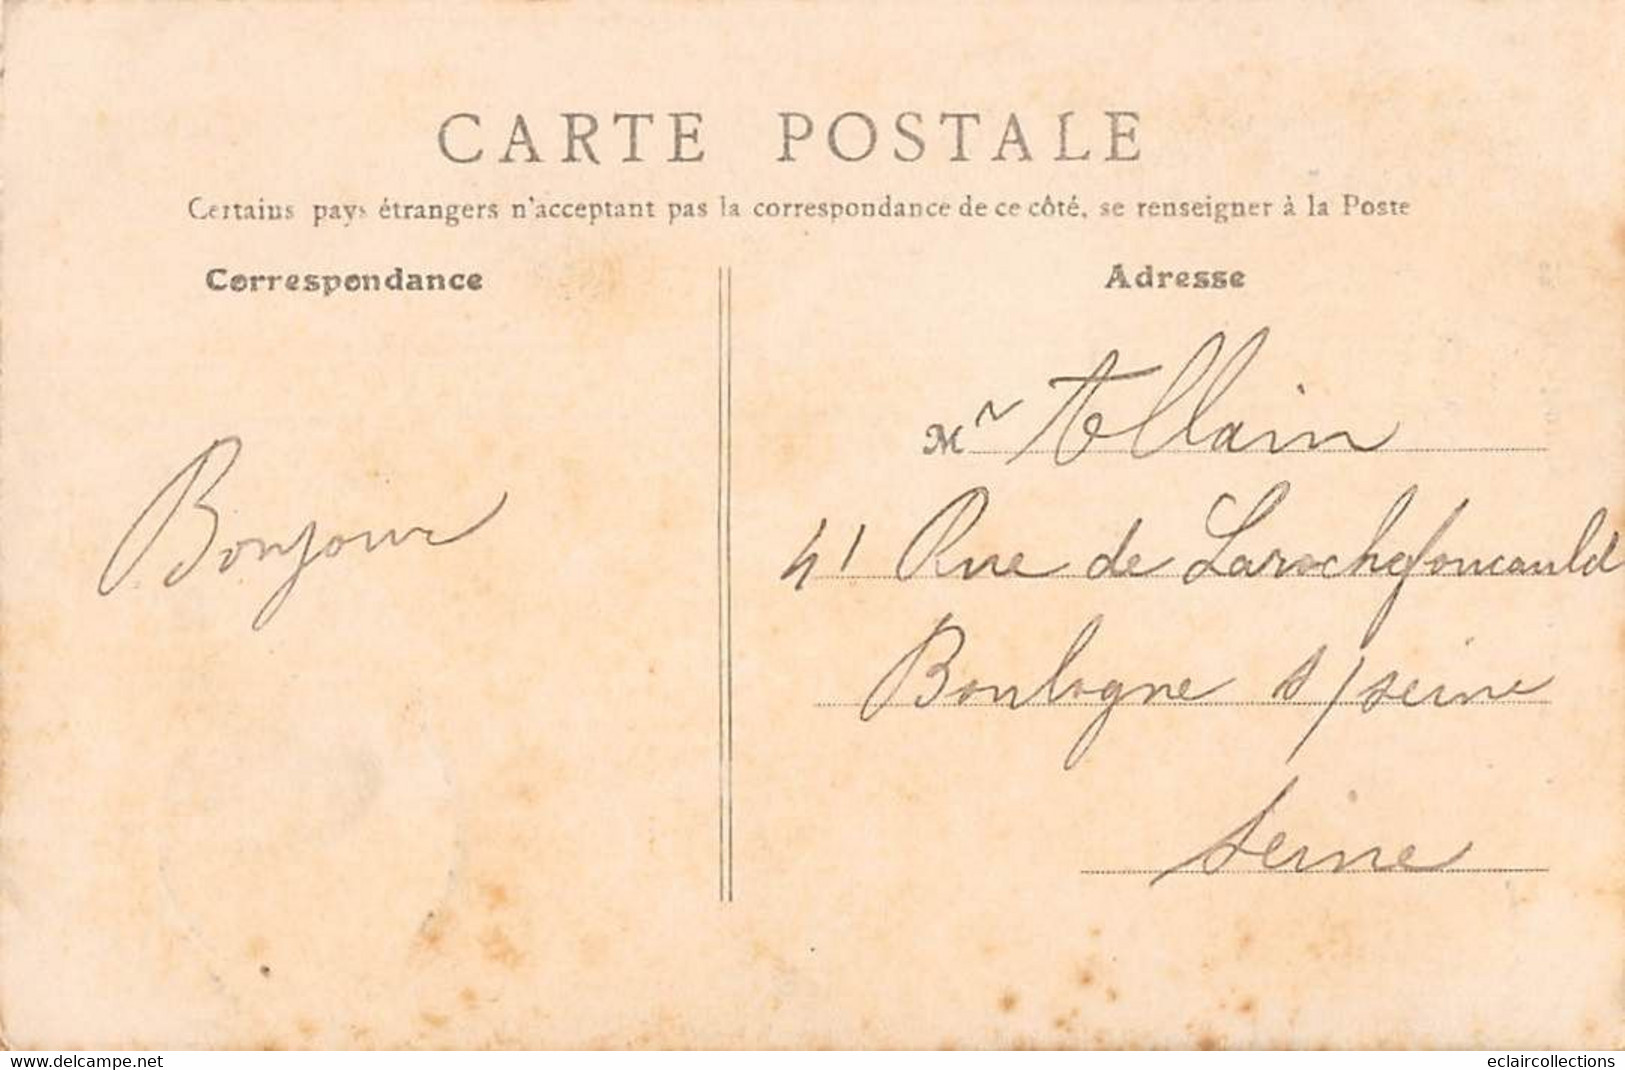 CARTE POSTALE
Certains pays étrangers n'acceptant pas la correspondance de ce côté, se renseigner à la Poste
Correspondance
Adresse
Bonjour
Mr Allain
41 Rue de Larochefoucauld
Boulogne s/seine
Seine
www.delcampe.net
eclaircollections